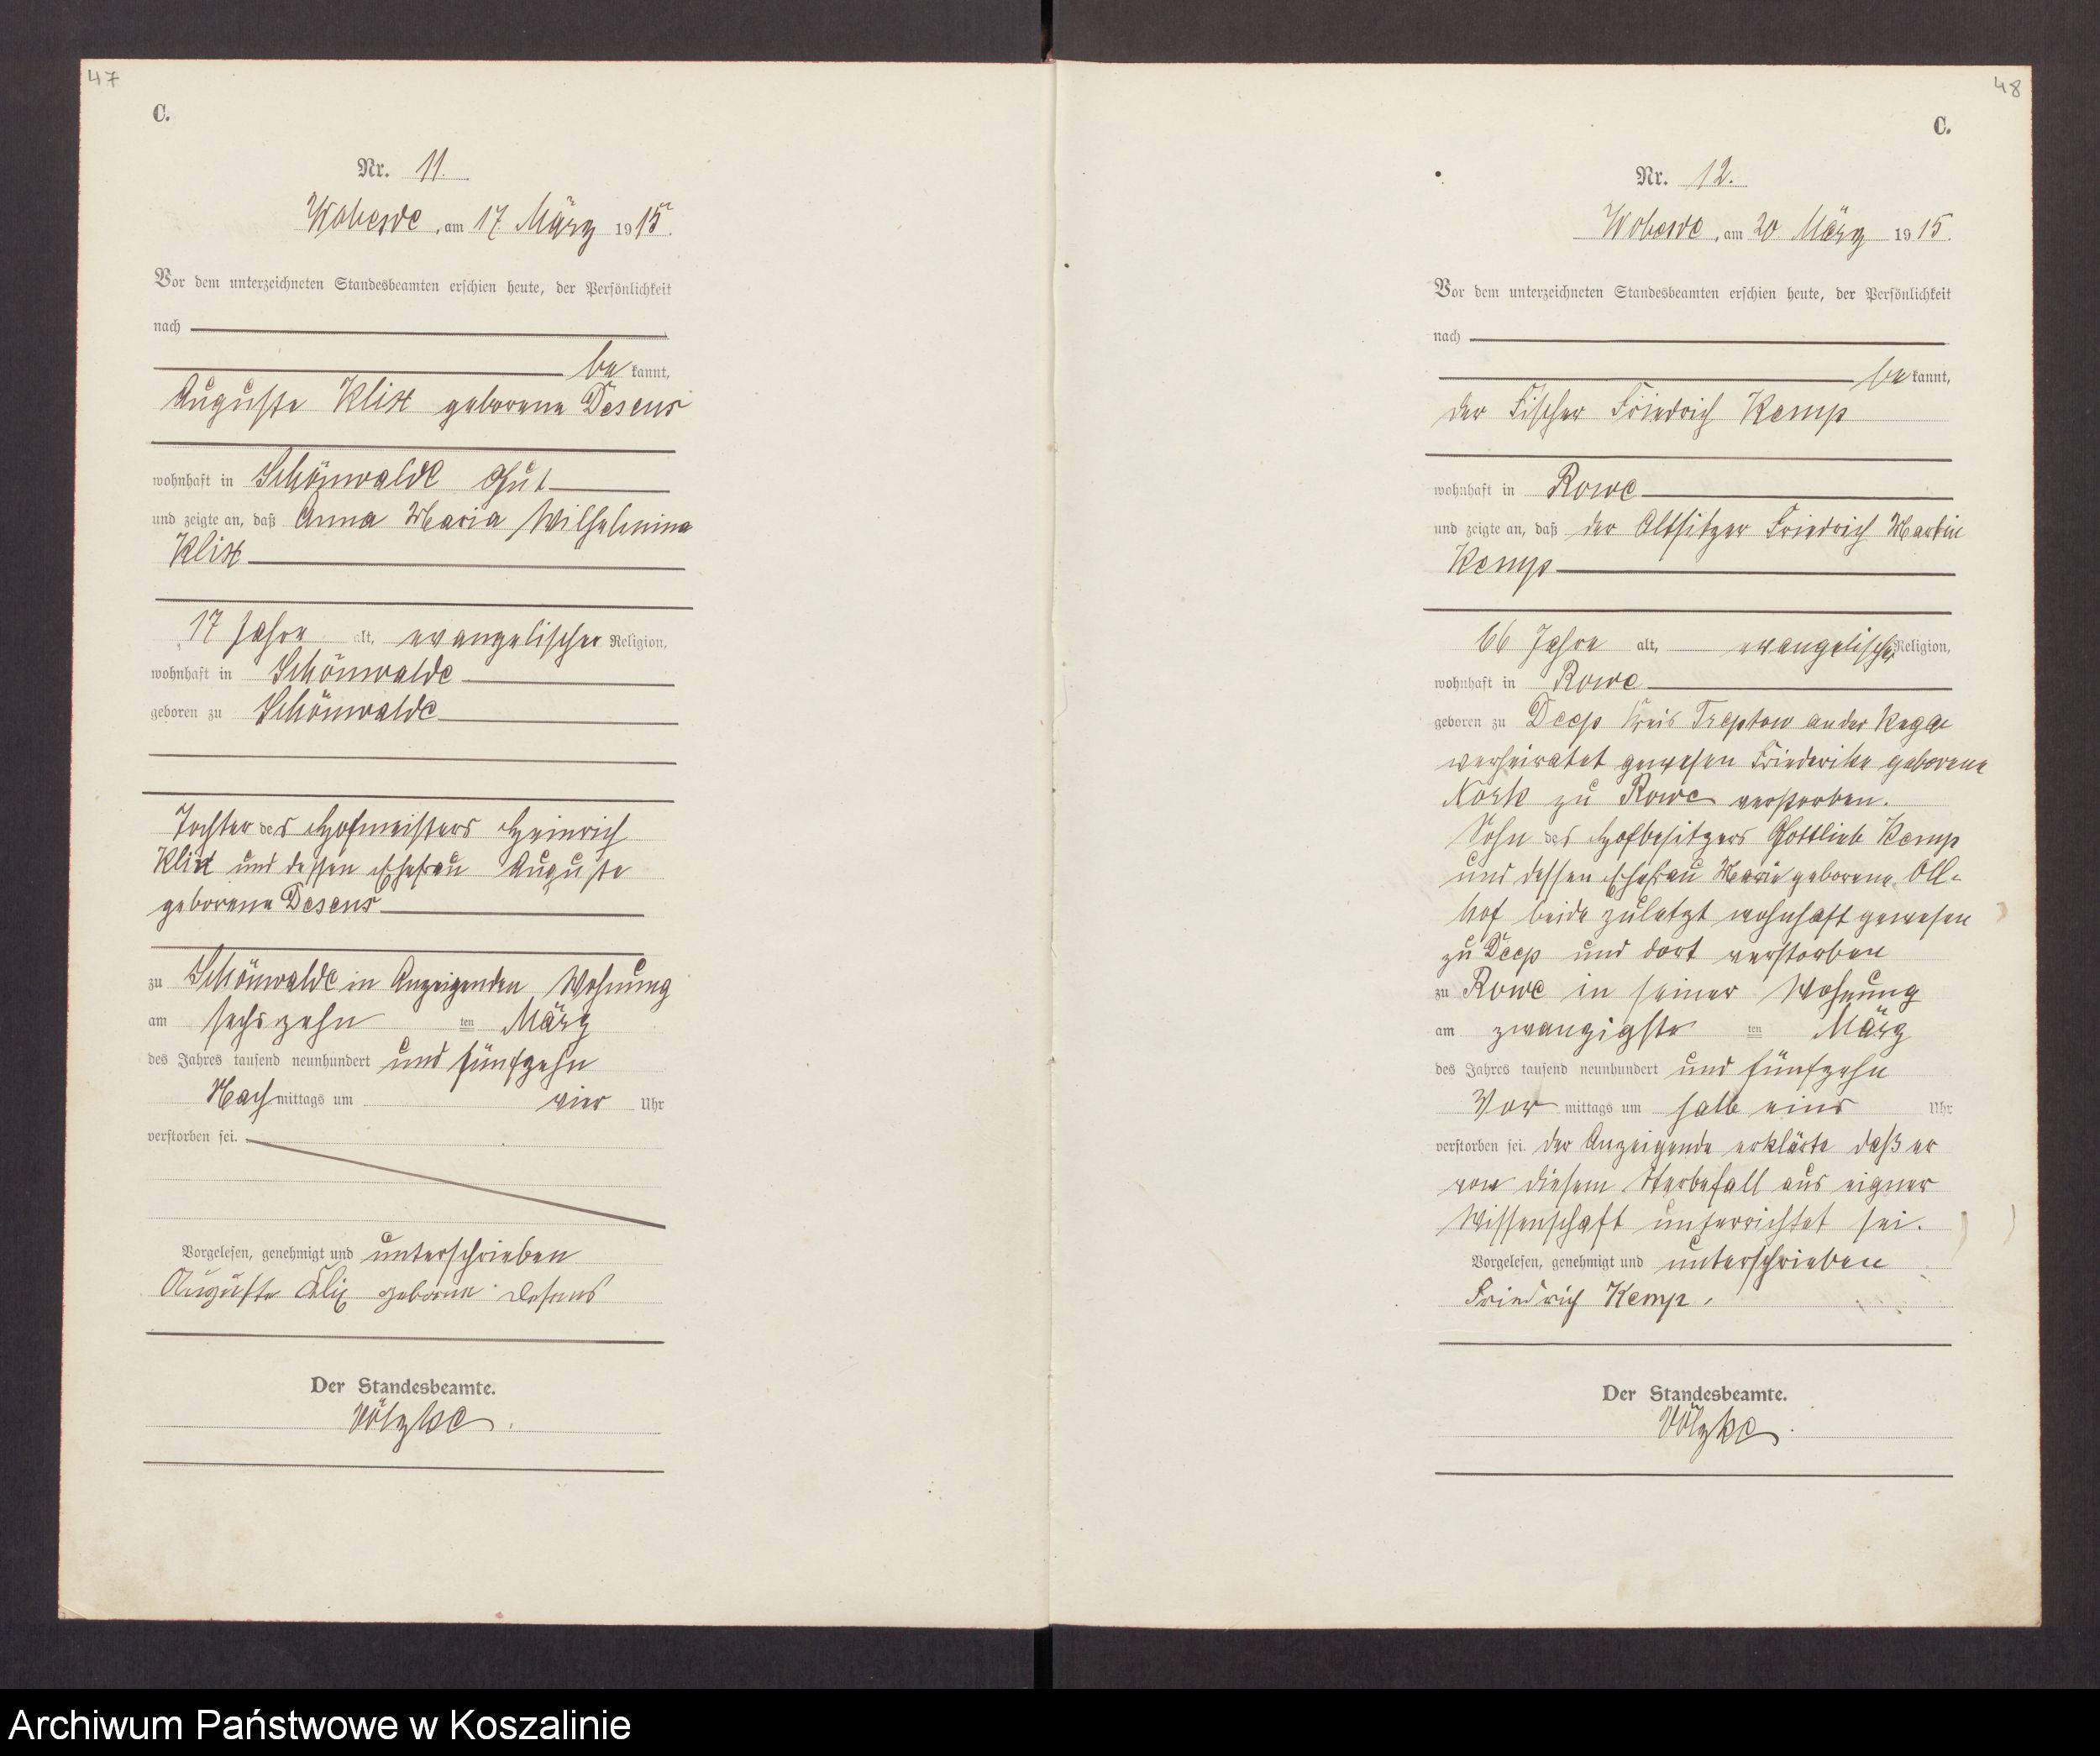 47
C.
Nr. 11.
Wobesde, am 17 März 1915.
Vor dem unterzeichneten Standesbeamten erschien heute, der Persönlichkeit
nach
be kannt,
Auguste Klix geborene Desens
wohnhaft in Schönwalde Gut
und zeigte an, daß Anna Maria Wilhelmine
Klix
17 Jahre alt, evangelischer Religion,
wohnhaft in Schönwalde
geboren zu Schönwalde
Tochter des Hofmeisters Heinrich
Klix und dessen Ehefrau Auguste
geborene Desens
zu Schönwalde in Anzeigenden Wohnung
am sechszehn ten März
des Jahres tausend neunhundert und fünfzehn
Nach mittags um vier Uhr
verstorben sei.
Vorgelesen, genehmigt und unterschrieben
Auguste Klix geborne Desens
Der Standesbeamte.
Völzke.
48
C.
Nr. 12.
Wobesde, am 20 März 1915.
Vor dem unterzeichneten Standesbeamten erschien heute, der Persönlichkeit
nach
be kannt,
der Fischer Friedrich Kemp
wohnhaft in Rowe
und zeigte an, daß der Altsitzer Friedrich Martin
Kemp
66 Jahre alt, evangelischer Religion,
wohnhaft in Rowe
geboren zu Deep Kreis Treptow an der Rega
verheiratet gewesen Friederike geborene
zu Rowe verstorben.
Sohn des Hofbesitzers Gottlieb Kemp
und dessen Ehefrau Marie geborene Oll-
hof beide zuletzt wohnhaft gewesen
zu Deep und dort verstorben
zu Rowe in seiner Wohnung
am zwanzigste ten März
des Jahres tausend neunhundert und fünfzehn
Vor mittags um halb eins Uhr
verstorben sei. der Anzeigende erklärte daß er
von diesem Sterbefall aus eigner
Wissenschaft unterrichtet sei.
Vorgelesen, genehmigt und unterschrieben
Friedrich Kemp.
Der Standesbeamte.
Völzke.
Archiwum Państwowe w Koszalinie